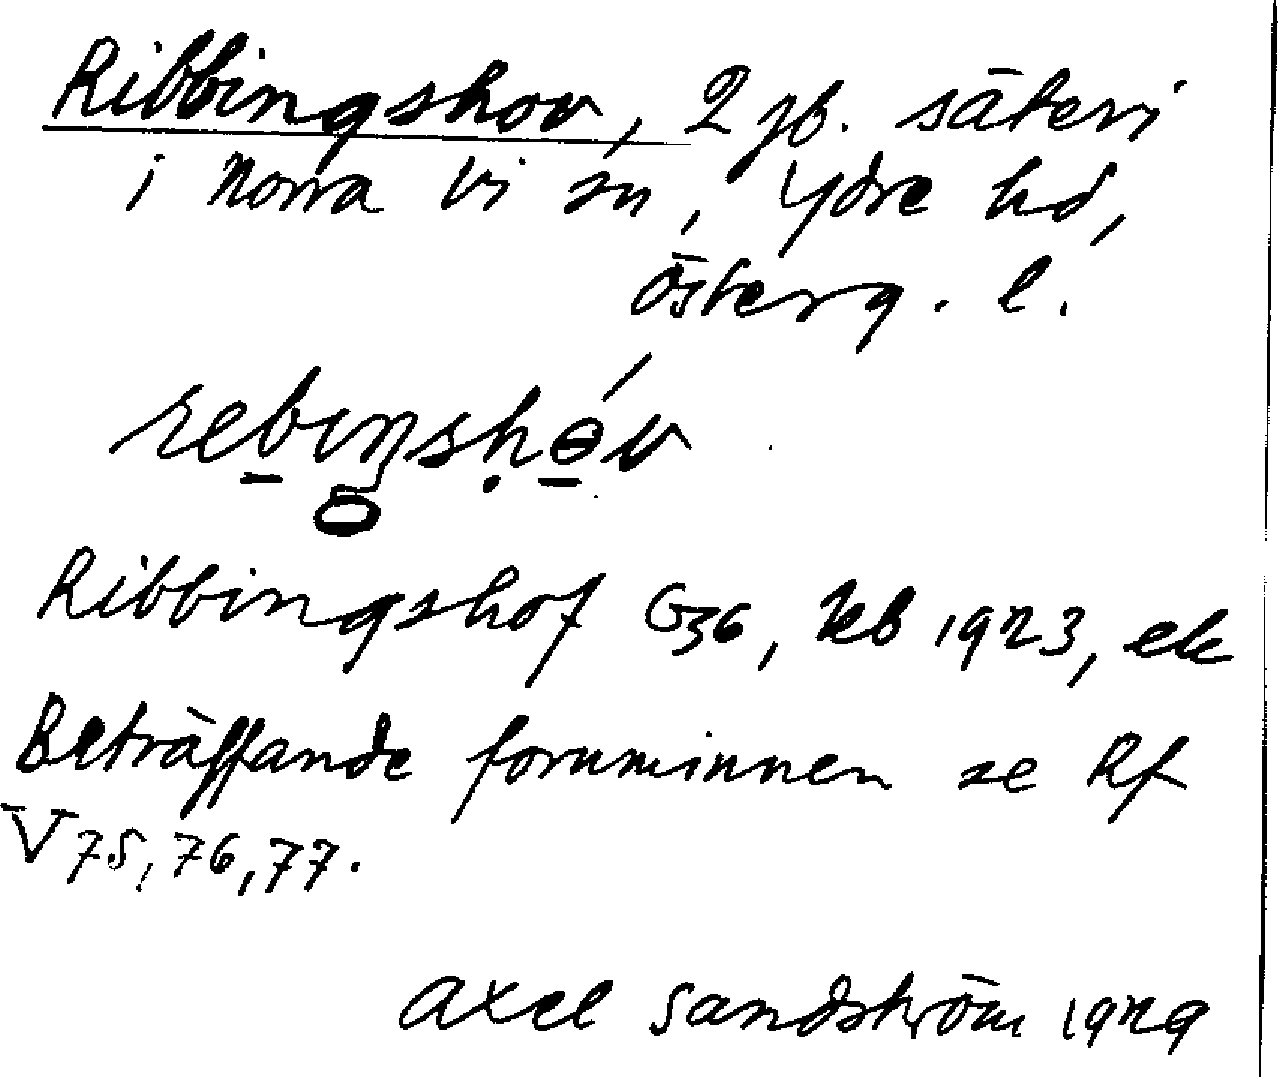 Ribbingshov, 2 gb. säteri
i Norra Vi sn, Ydre hd,
Österg. l.
Ribbingshof G36, Keb 1923, ek
Beträffande fornminnen se Rf
V 75, 76, 77.
Axel Sandström 1929